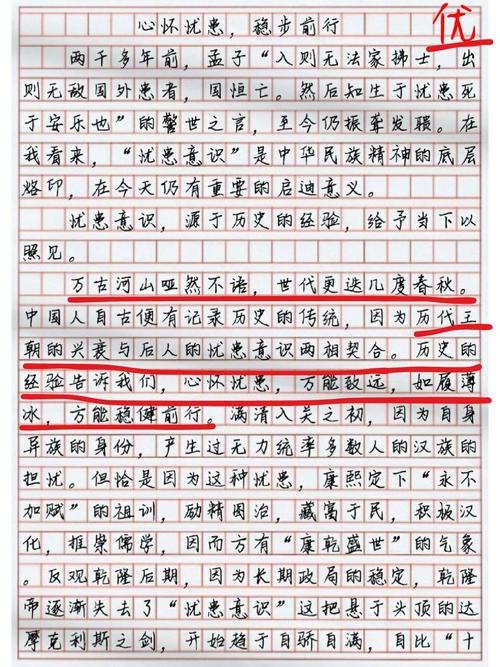 优
心怀忧患，稳步前行
两千多年前，孟子“入则无法家拂士，出
则无敌国外患者，国恒亡。然后知生于忧患死
于安乐也”的警世之言，至今仍振聋发聩。在
我看来，“忧患意识”是中华民族精神的底层
烙印，在今天仍有重要的启迪意义。
忧患意识，源于历史的经验，给予当下以
照见。
万古河山哑然不语，世代更迭几度春秋。
中国人自古便有记录历史的传统，因为历代王
朝的兴衰与后人的忧患意识两相契合。历史的
经验告诉我们，心怀忧患，方能致远，如履薄
冰，方能稳健前行。满清入关之初，因为自身
异族的身份，产生过无力统率多数人的汉族的
担忧。但恰是因为这种忧患，康熙定下“永不
加赋”的祖训，励精图治，藏富于民，积极汉
化，推崇儒学，因而方有“康乾盛世”的气象
。反观乾隆后期，因为长期政局的稳定，乾隆
帝逐渐失去了“忧患意识”这把悬于头顶的达
摩克利斯之剑，开始趋于自骄自满，自比“十